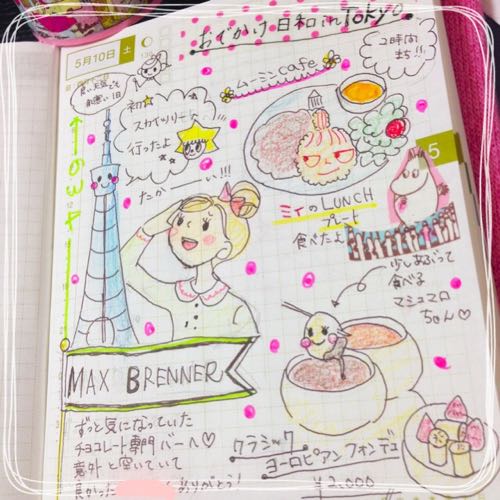 おでかけ日和 in Tokyo
5月10日 土
2時間
まち!!
ムーミン cafe
初
スカイツリーに
行ったよ
たかーーい!!!
634
ミィのLUNCH
プレート
食べたよ
5
少しあぶって
食べる
マシュマロ
ちゃん♡
MAX BRENNER
ずっと気になっていた
チョコレート専門バーへ♡
意外と空いていて
良かった
ありがとう!
クラシック
ヨーロピアンフォンデュ
¥2,000